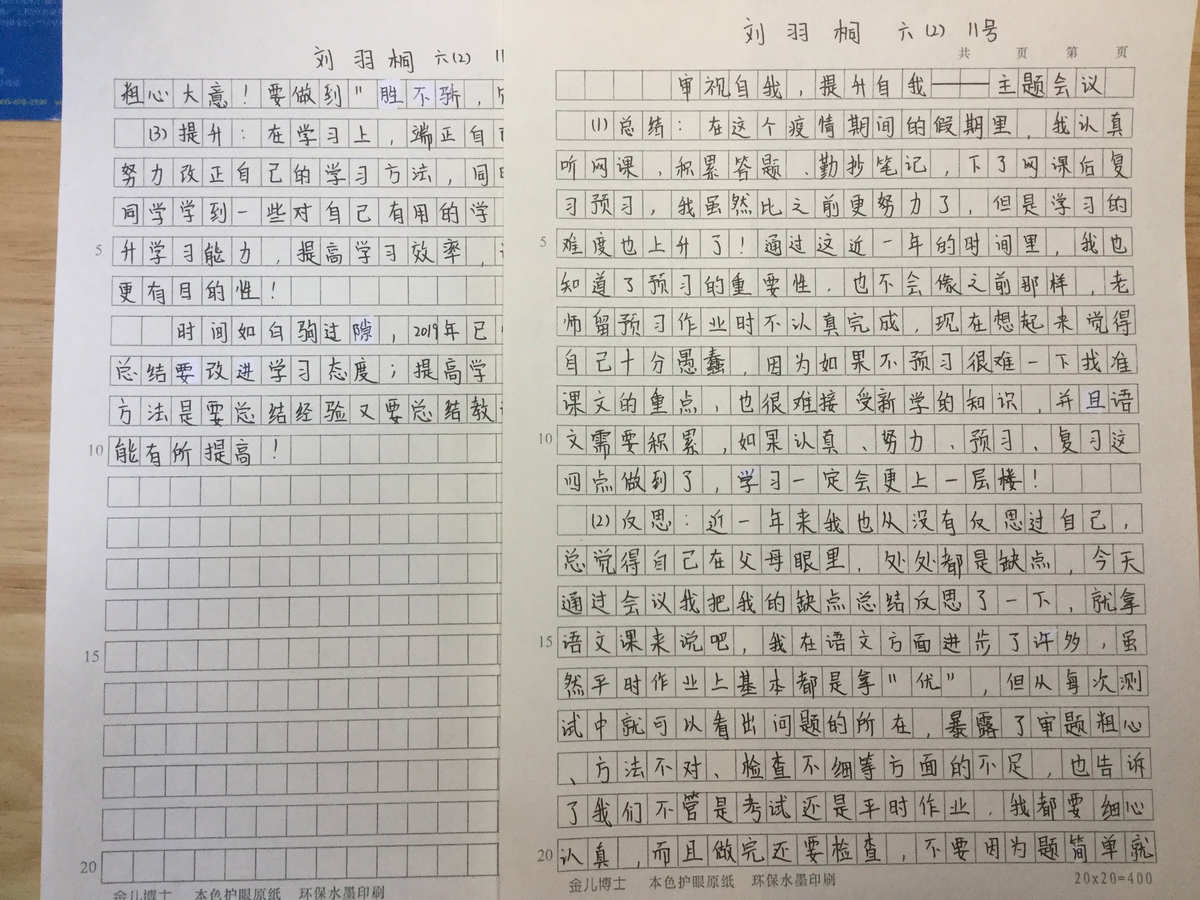 刘羽桐 六(2) 11号
共 页 第 页
审视自我，提升自我——主题会议
(1)总结：在这个疫情期间的假期里，我认真
听网课、积累答题、勤抄笔记，下了网课后复
习预习，我虽然比之前更努力了，但是学习的
5 难度也上升了！通过这近一年的时间里，我也
知道了预习的重要性，也不会像之前那样，老
师留预习作业时不认真完成，现在想起来觉得
自己十分愚蠢，因为如果不预习很难一下找准
课文的重点，也很难接受新学的知识，并且语
10 文需要积累，如果认真、努力、预习、复习这
四点做到了，学习一定会更上一层楼！
(2)反思：近一年来我也从没有反思过自己，
总觉得自己在父母眼里，处处都是缺点，今天
通过会议我把我的缺点总结反思了一下，就拿
15 语文课来说吧，我在语文方面进步了许多，虽
然平时作业上基本都是拿"优"，但从每次测
试中就可以看出问题的所在，暴露了审题粗心
、方法不对、检查不细等方面的不足，也告诉
了我们不管是考试还是平时作业，我都要细心
20 认真，而且做完还要检查，不要因为题简单就
金儿博士 本色护眼原纸 环保水墨印刷
20x20=400
刘羽桐 六(2) 11
粗心大意！要做到"胜不骄，
(3)提升：在学习上，端正自
努力改正自己的学习方法，同
同学学到一些对自己有用的学
5 升学习能力，提高学习效率，
更有目的性！
时间如白驹过隙，2019年已
总结要改进学习态度；提高学
方法是要总结经验又要总结教
10 能有所提高！
15
20
金儿博士 本色护眼原纸 环保水墨印刷